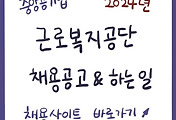 중앙공기업 2024년
근로복지공단
채용공고 & 하는일
채용사이트 바로가기